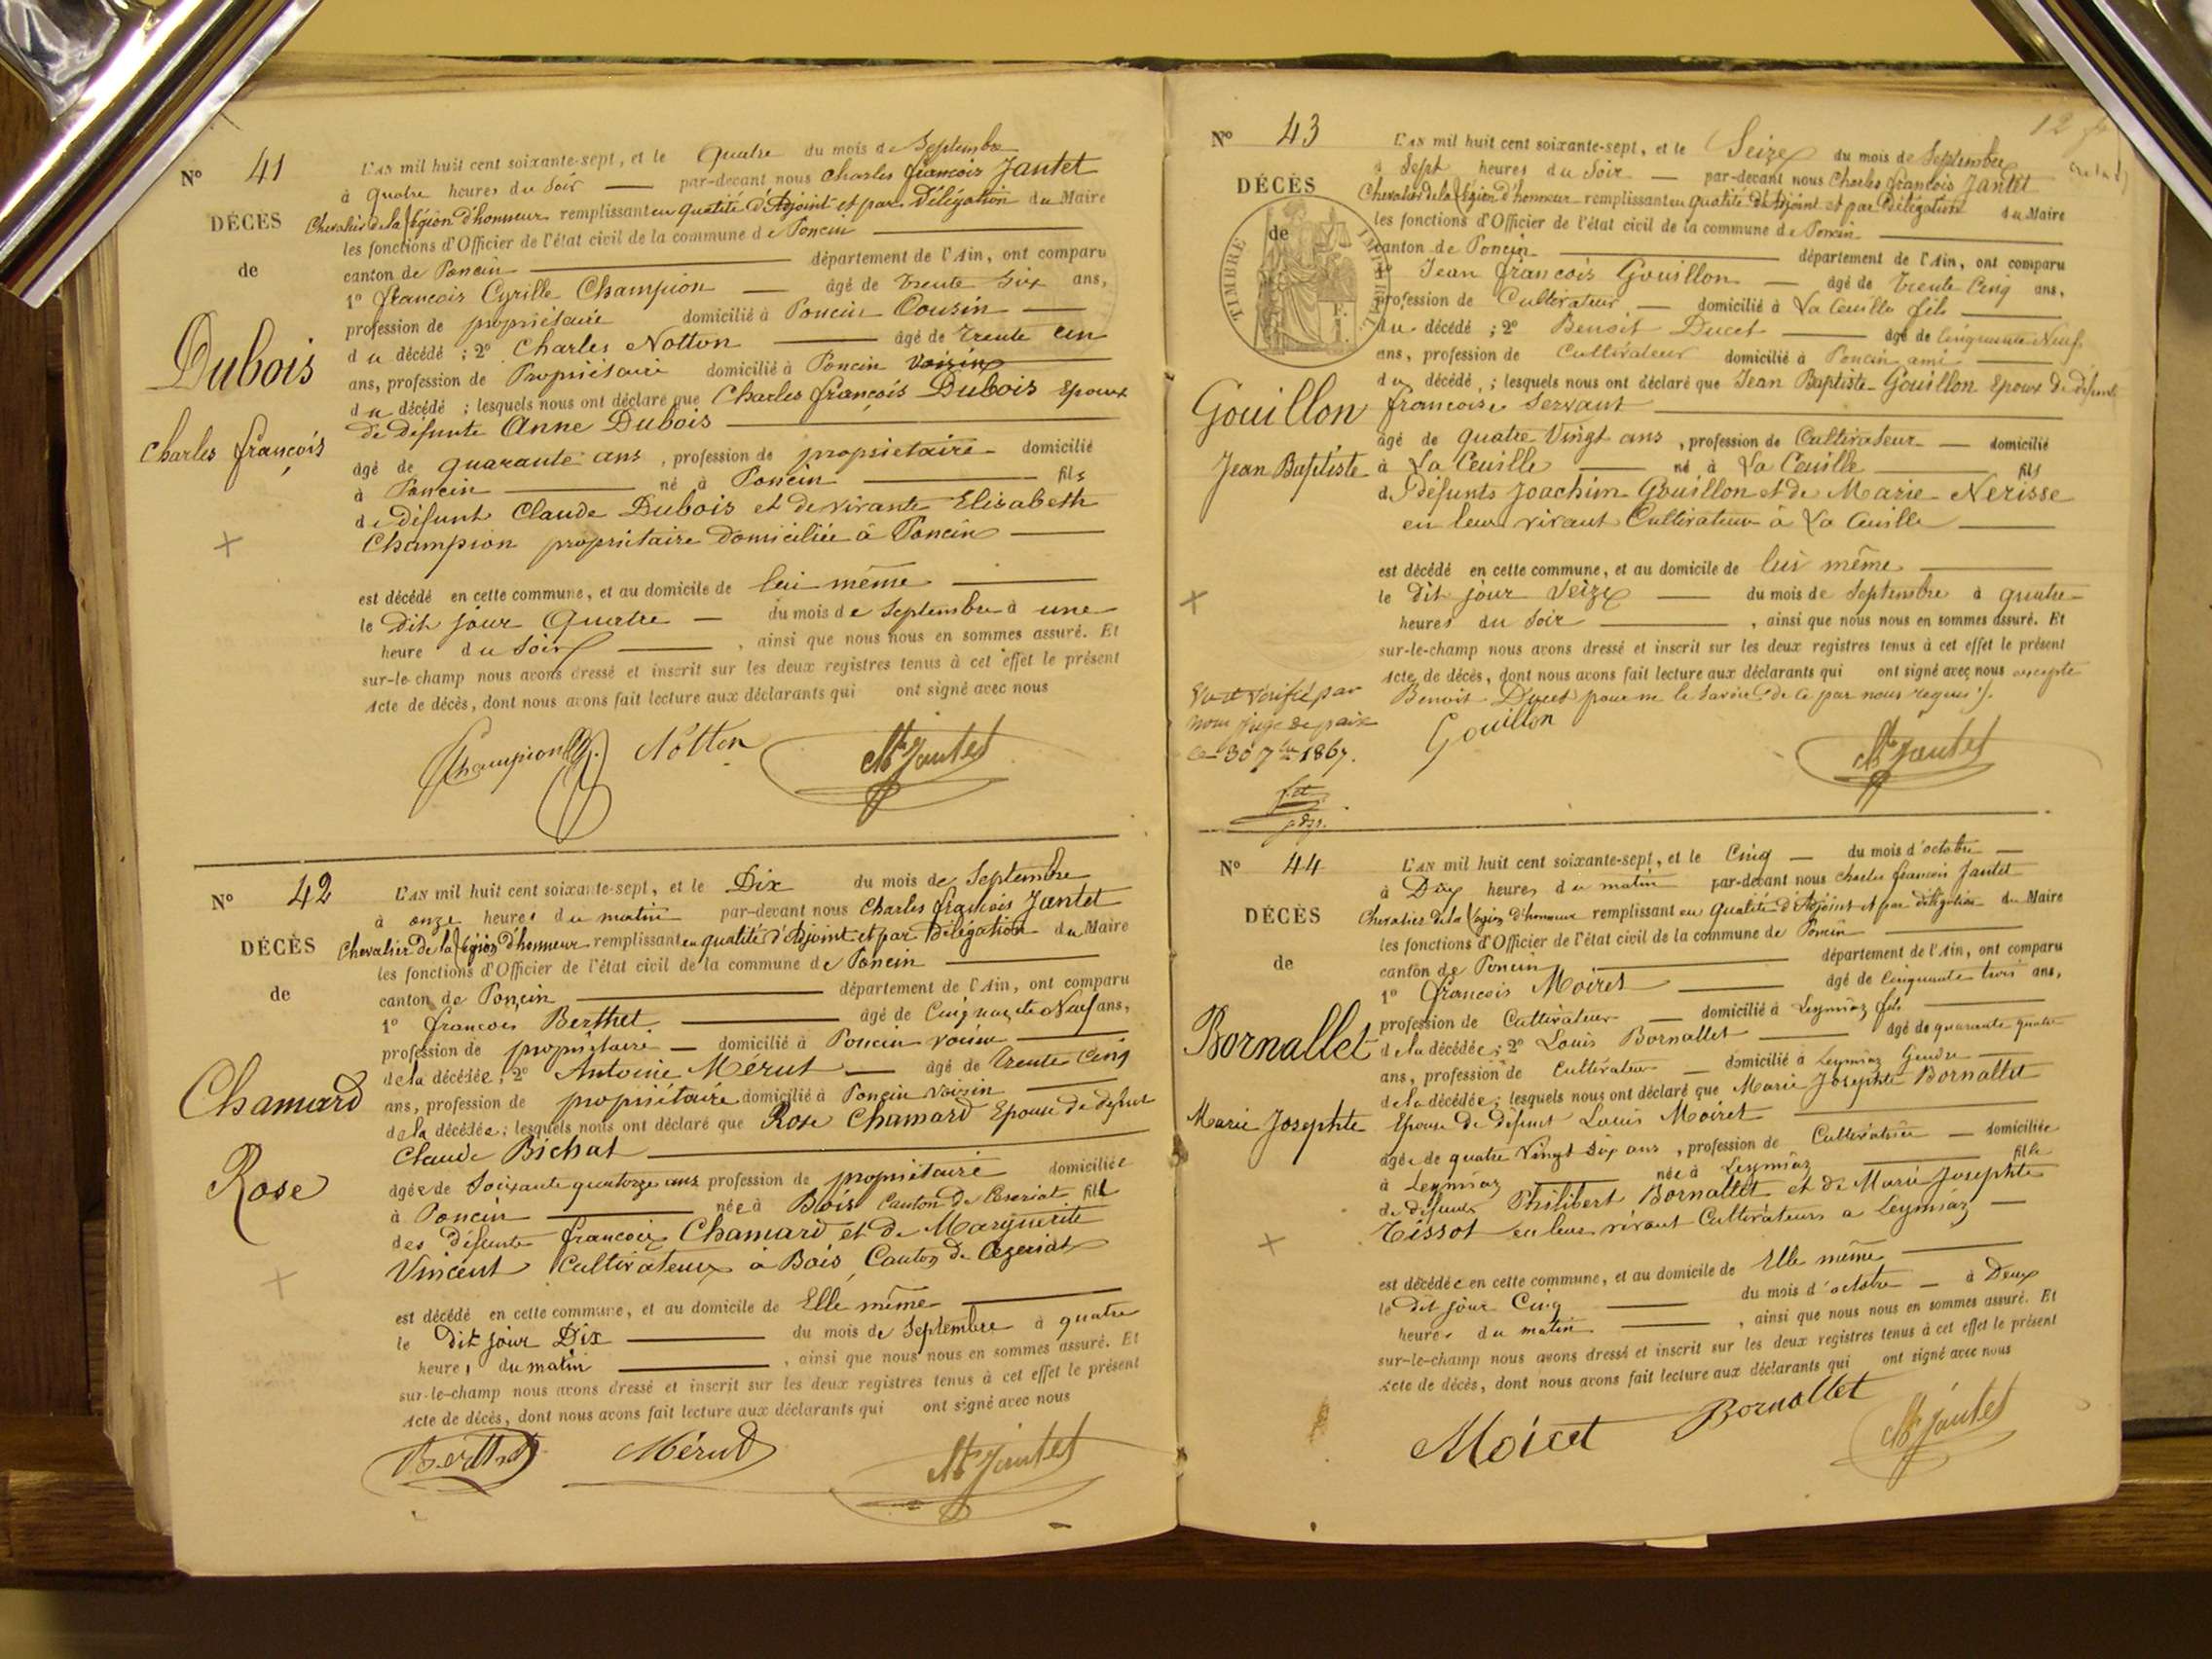 N° 41
DÉCÈS
de
Dubois
Charles françois
L'AN mil huit cent soixante-sept, et le Quatre du mois de Septembre
à Quatre heures du Soir par-devant nous Charles françois Jantet
Chevalier de la Légion d'honneur remplissant en qualité d'Adjoint et par Délégation du Maire
les fonctions d'Officier de l'état civil de la commune de Poncin
canton de Poncin département de l'Ain, ont comparu
1° françois Cyrille Champion âgé de trente Six ans,
profession de propriétaire domicilié à Poncin Cousin
du décédé ; 2° Charles Notton âgé de trente un
ans, profession de Propriétaire domicilié à Poncin voisin
du décédé ; lesquels nous ont déclaré que Charles françois Dubois Epoux
de défunte Anne Dubois
âgé de quarante ans , profession de propriétaire domicilié
à Poncin né à Poncin fils
de défunt Claude Dubois et de vivante Elisabeth
Champion propriétaire domiciliée à Poncin
est décédé en cette commune, et au domicile de lui même
le Dit jour Quatre du mois de Septembre à une
heure du Soir , ainsi que nous nous en sommes assuré. Et
sur-le-champ nous avons dressé et inscrit sur les deux registres tenus à cet effet le présent
Acte de décès, dont nous avons fait lecture aux déclarants qui ont signé avec nous
Champion Notton Jantet
N° 42
DÉCÈS
de
Chamard
Rose
L'AN mil huit cent soixante-sept, et le Dix du mois de Septembre
à onze heures du matin par-devant nous Charles françois Jantet
Chevalier de la Légion d'honneur remplissant en qualité d'Adjoint et par Délégation du Maire
les fonctions d'Officier de l'état civil de la commune de Poncin
canton de Poncin département de l'Ain, ont comparu
1° françois Berthet âgé de Cinquante Neuf ans,
profession de propriétaire domicilié à Poncin voisin
de la décédée ; 2° Antoine Mérut âgé de trente Cinq
ans, profession de propriétaire domicilié à Poncin voisin
de la décédée ; lesquels nous ont déclaré que Rose Chamard Epouse de défunt
Claude Bichat
âgée de Soixante quatorze ans profession de propriétaire domiciliée
à Poncin née à Bois Canton de Ceseriat fille
des défunts françois Chamard et de Marguerite
Vincent Cultivateurs à Bois Canton de Cezeriat
est décédé en cette commune, et au domicile de Elle même
le dit jour Dix du mois de Septembre à quatre
heures du matin , ainsi que nous nous en sommes assuré. Et
sur-le-champ nous avons dressé et inscrit sur les deux registres tenus à cet effet le présent
Acte de décès, dont nous avons fait lecture aux déclarants qui ont signé avec nous
Berthet Mérut Jantet
12
N° 43
DÉCÈS
de
TIMBRE IMPERIAL
Gouillon
Jean Baptiste
L'AN mil huit cent soixante-sept, et le Seize du mois de Septembre
à Sept heures du Soir par-devant nous Charles françois Jantet
Chevalier de la Légion d'honneur remplissant en qualité d'Adjoint et par Délégation du Maire
les fonctions d'Officier de l'état civil de la commune de Poncin
canton de Poncin département de l'Ain, ont comparu
1° Jean françois Gouillon âgé de trente Cinq ans,
profession de Cultivateur domicilié à La Cueille fils
du décédé ; 2° Benoit Ducet âgé de Cinquante Neuf
ans, profession de Cultivateur domicilié à Poncin ami
du décédé ; lesquels nous ont déclaré que Jean Baptiste Gouillon Epoux de défunte
françoise Servant
âgé de quatre Vingt ans , profession de Cultivateur domicilié
à La Cueille né à La Cueille fils
de Défunts Joachim Gouillon et de Marie Nerisse
en leur vivant Cultivateurs à La Cueille
est décédé en cette commune, et au domicile de lui même
le dit jour Seize du mois de Septembre à quatre
heures du Soir , ainsi que nous nous en sommes assuré. Et
sur-le-champ nous avons dressé et inscrit sur les deux registres tenus à cet effet le présent
Acte de décès, dont nous avons fait lecture aux déclarants qui ont signé avec nous excepté
Benoit Ducet pour ne le savoir de ce par nous requis
Gouillon Jantet
Vu et vérifié par
nous juge de paix
le 30 7bre 1867.
N° 44
DÉCÈS
de
Bornallet
Marie Josephte
L'AN mil huit cent soixante-sept, et le Cinq du mois d'octobre
à Dix heures du matin par-devant nous Charles françois Jantet
Chevalier de la Légion d'honneur remplissant en Qualité d'Adjoint et par délégation du Maire
les fonctions d'Officier de l'état civil de la commune de Poncin
canton de Poncin département de l'Ain, ont comparu
1° françois Moiret âgé de Cinquante trois ans,
profession de Cultivateur domicilié à Leymiaz fils
de la décédée ; 2° Louis Bornallet âgé de quarante quatre
ans, profession de Cultivateur domicilié à Leymiaz Gendre
de la décédée ; lesquels nous ont déclaré que Marie Josephte Bornallet
Epouse de défunt Louis Moiret
âgée de quatre Vingt Six ans , profession de Cultivatrice domiciliée
à Leymiaz née à Leymiaz fille
de défunts Philibert Bornallet et de Marie Josephte
Tissot en leur vivant Cultivateurs a Leymiaz
est décédée en cette commune, et au domicile de Elle même
le dit jour Cinq du mois d'octobre à Deux
heures du matin , ainsi que nous nous en sommes assuré. Et
sur-le-champ nous avons dressé et inscrit sur les deux registres tenus à cet effet le présent
Acte de décès, dont nous avons fait lecture aux déclarants qui ont signé avec nous
Moiret Bornallet Jantet